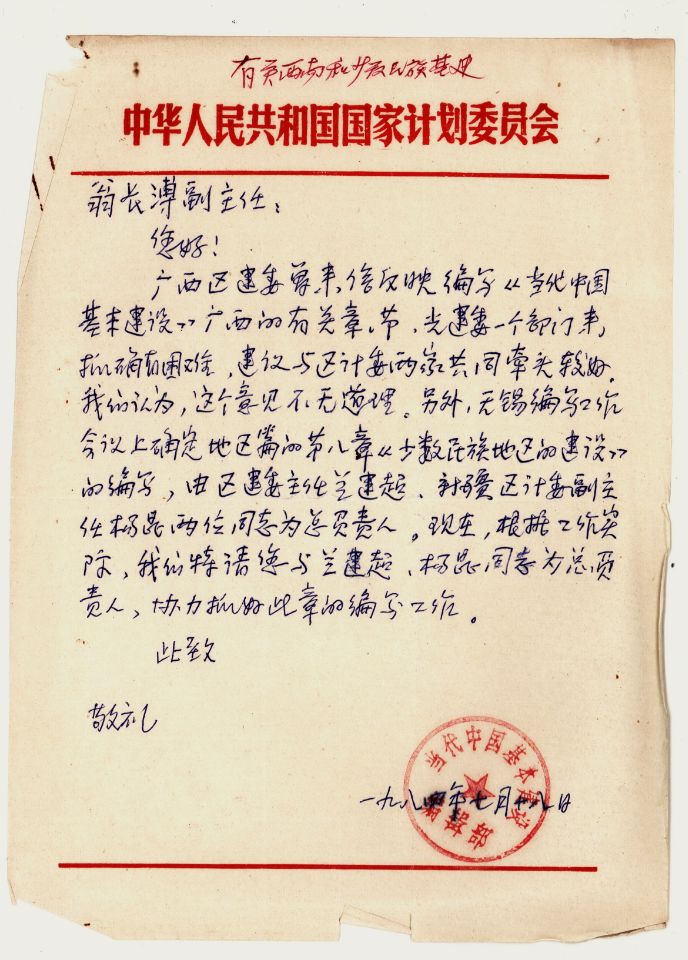 有关西南和少数民族基建
中华人民共和国国家计划委员会
翁长溥副主任：
您好！
广西区建委曾来信反映编写《当代中国
基本建设》广西的有关章、节，光建委一个部门来
抓确有困难，建议与区计委两家共同牵头较好。
我们认为，这个意见不无道理。另外，无锡编写工作
会议上确定地区篇的第八章《少数民族地区的建设》
的编写，由区建委主任兰建起、新疆区计委副主
任杨昆两位同志为总负责人。现在，根据工作实
际，我们特请您与兰建起、杨昆同志为总负
责人，协力抓好此章的编写工作。
此致
敬礼
当代中国基本建设
编辑部
一九八四年七月十八日